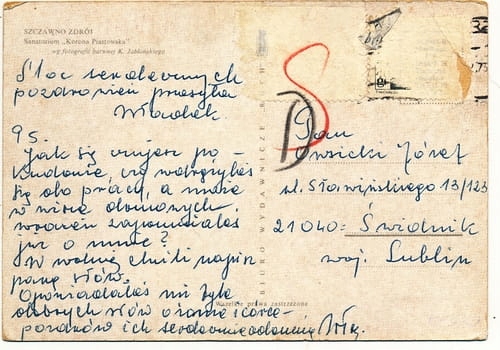 SZCZAWNO ZDRÓJ
Sanatorium „Korona Piastowska"
wg fotografii barwnej K. Jabłońskiego
Moc serdecznych
pozdrowień przesyła
Władek.
PS.
Jak się czujesz po
kuracji, czy
się do pracy, a może
w domowych.
zapomniałeś
już o mnie?
W wolnej chwili napisz
parę słów.
Opowiadałeś mi tyle
dobrych słów o żonie i córce
pozdrów ich serdecznie ode mnie
BIURO WYDAWNICZE RUCH
Wszelkie prawa zastrzeżone
Pan
Owsicki Józef
ul. Sławińskiego 13/123
21040 = Świdnik
woj. Lublin